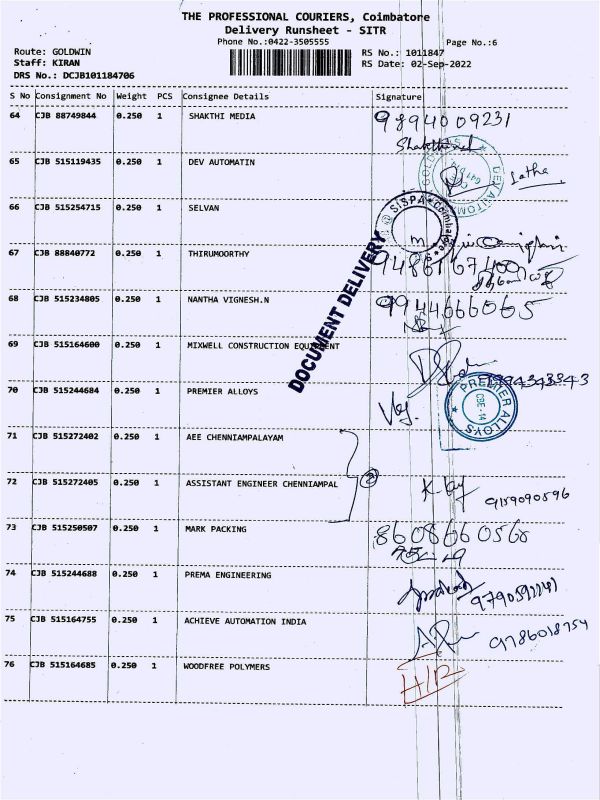 THE PROFESSIONAL COURIERS, Coimbatore
Delivery Runsheet - SITR
Phone No.:0422-3505555
Page No.:6
Route: GOLDWIN
RS No.: 1011847
Staff: KIRAN
RS Date: 02-Sep-2022
DRS No.: DCJB101184706
S No Consignment No Weight PCS Consignee Details Signature
64 CJB 88749844 0.250 1 SHAKTHI MEDIA 9894009231
65 CJB 515119435 0.250 1 DEV AUTOMATIN Latha
66 CJB 515254715 0.250 1 SELVAN
SISPA Coimbatore
67 CJB 88840772 0.250 1 THIRUMOORTHY
DOCUMENT DELIVERY
68 CJB 515234805 0.250 1 NANTHA VIGNESH.N 9944666065
69 CJB 515164600 0.250 1 MIXWELL CONSTRUCTION EQUIPMENT
70 CJB 515244684 0.250 1 PREMIER ALLOYS
PREMIER ALLOYS
CBE-14
71 CJB 515272402 0.250 1 AEE CHENNIAMPALAYAM
2
72 CJB 515272405 0.250 1 ASSISTANT ENGINEER CHENNIAMPAL
9159090596
73 CJB 515250507 0.250 1 MARK PACKING
74 CJB 515244688 0.250 1 PREMA ENGINEERING
75 CJB 515164755 0.250 1 ACHIEVE AUTOMATION INDIA 9786018754
76 CJB 515164685 0.250 1 WOODFREE POLYMERS